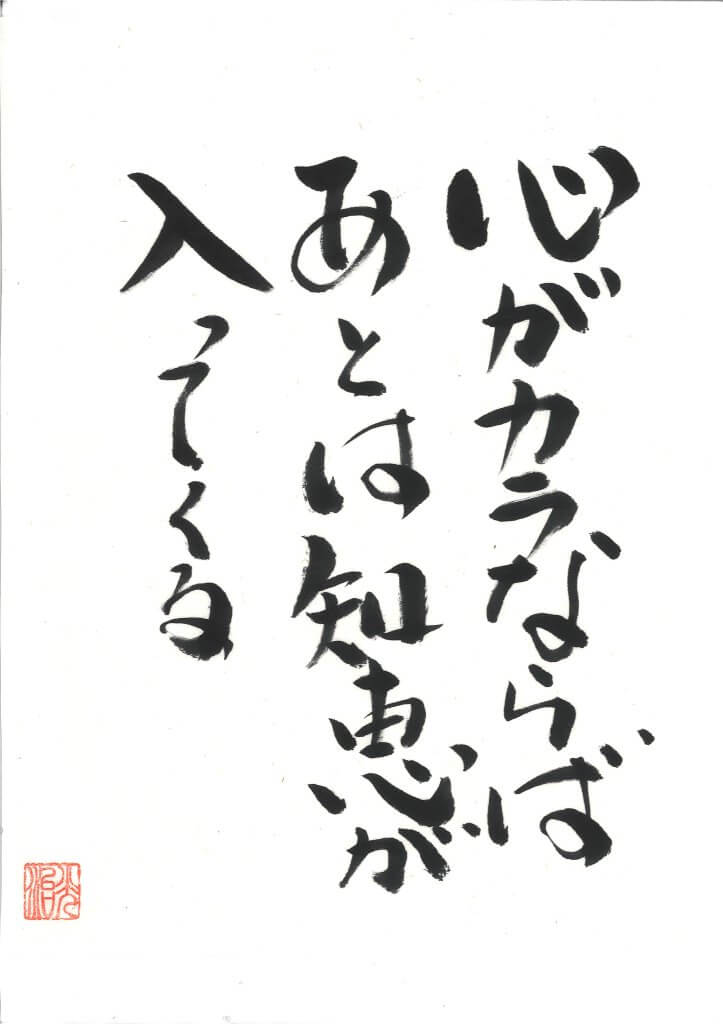 心がカラならば
あとは知恵が
入ってくる